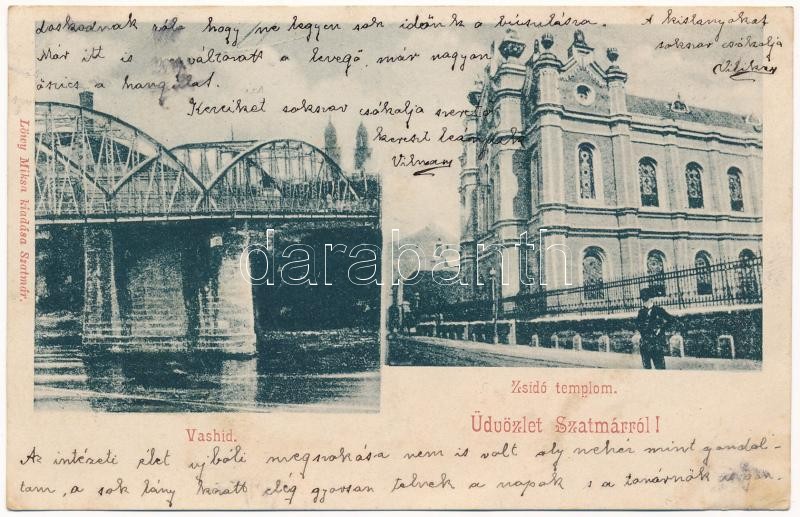 doskodnak róla hogy ne legyen sok időnk a búsulásra.
Már itt is megváltozott a levegő, már nagyon
őszies a hangulat.
Kereiket sokszor csókolja szerető
kereszt leánya
Vilma
A kislányokat
sokszor csókolja
Vilikém
Löwy Miksa kiadása Szatmár.
darabanth
Zsidó templom.
Vashíd.
Üdvözlet Szatmárról!
Az intézeti élet ujbóli megszokása nem is volt oly nehéz mint gondol-
tam, a sok lány között elég gyorsan telnek a napok s a tanárnők